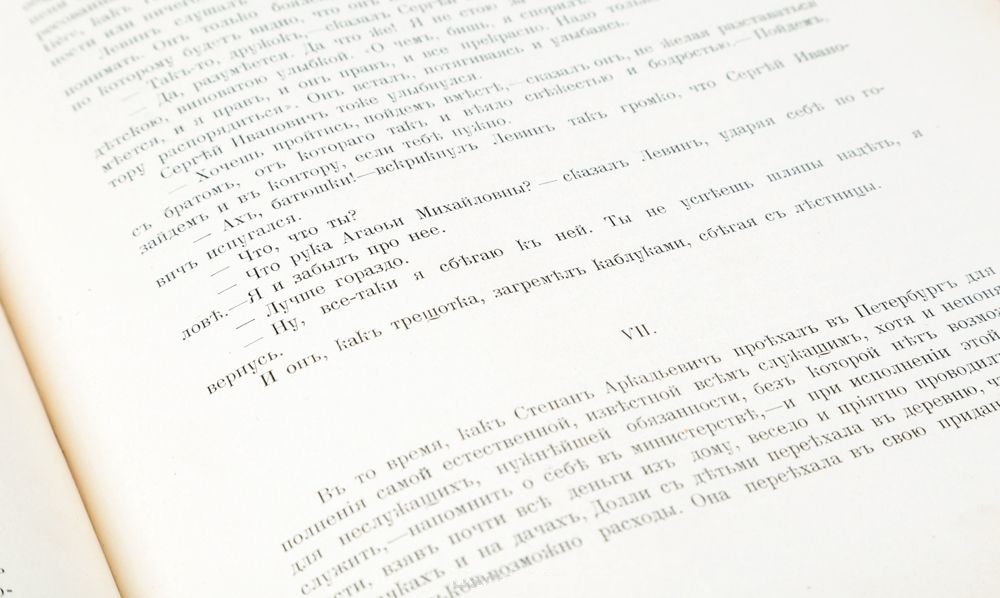 какъ
слушалъ
Левинъ
понимать. Онъ только
по которому будетъ видно, что онъ
— Такъ-то, дружокъ,—сказалъ Сергѣй
— Да, разумѣется. Да что же! Я не стою за
дѣтскою, виноватою улыбкой. «О чемъ, бишь, я спорилъ?
мѣется, и я правъ, и онъ правъ, и все прекрасно. Надо только
тору распорядиться». Онъ всталъ, потягиваясь и улыбаясь.
Сергѣй Ивановичъ тоже улыбнулся.
— Хочешь пройтись, пойдемъ вмѣстѣ,—сказалъ онъ, не желая разставаться
съ братомъ, отъ котораго такъ и вѣяло свѣжестью и бодростью.—Пойдемъ,
зайдемъ и въ контору, если тебѣ нужно.
— Ахъ, батюшки!—вскрикнулъ Левинъ такъ громко, что Сергѣй Ивано-
вичъ испугался.
— Что, что ты?
— Что рука Агаѳьи Михайловны? — сказалъ Левинъ, ударяя себѣ по го-
ловѣ.—Я и забылъ про нее.
— Лучше гораздо.
— Ну, все-таки я сбѣгаю къ ней. Ты не успѣешь шляпы надѣть, я
вернусь.
И онъ, какъ трещотка, загремѣлъ каблуками, сбѣгая съ лѣстницы.
VII.
Въ то время, какъ Степанъ Аркадьевичъ проѣхалъ въ Петербургъ для
полненія самой естественной, извѣстной всѣмъ служащимъ, хотя и непоня
для неслужащихъ, нужнѣйшей обязанности, безъ которой нѣтъ возмож
служить,—напомнить о себѣ въ министерствѣ,—и при исполненіи этой
сти, взявъ почти всѣ деньги изъ дому, весело и пріятно проводилъ
чкахъ и на дачахъ, Долли съ дѣтьми переѣхала въ деревню, ч
возможно расходы. Она переѣхала въ свою придан